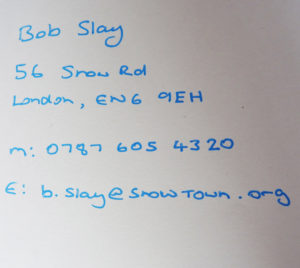 Bob Slay
56 Snow Rd
London, EN6 9EH
m: 0787 605 4320
E: b.slay@snowtown.org